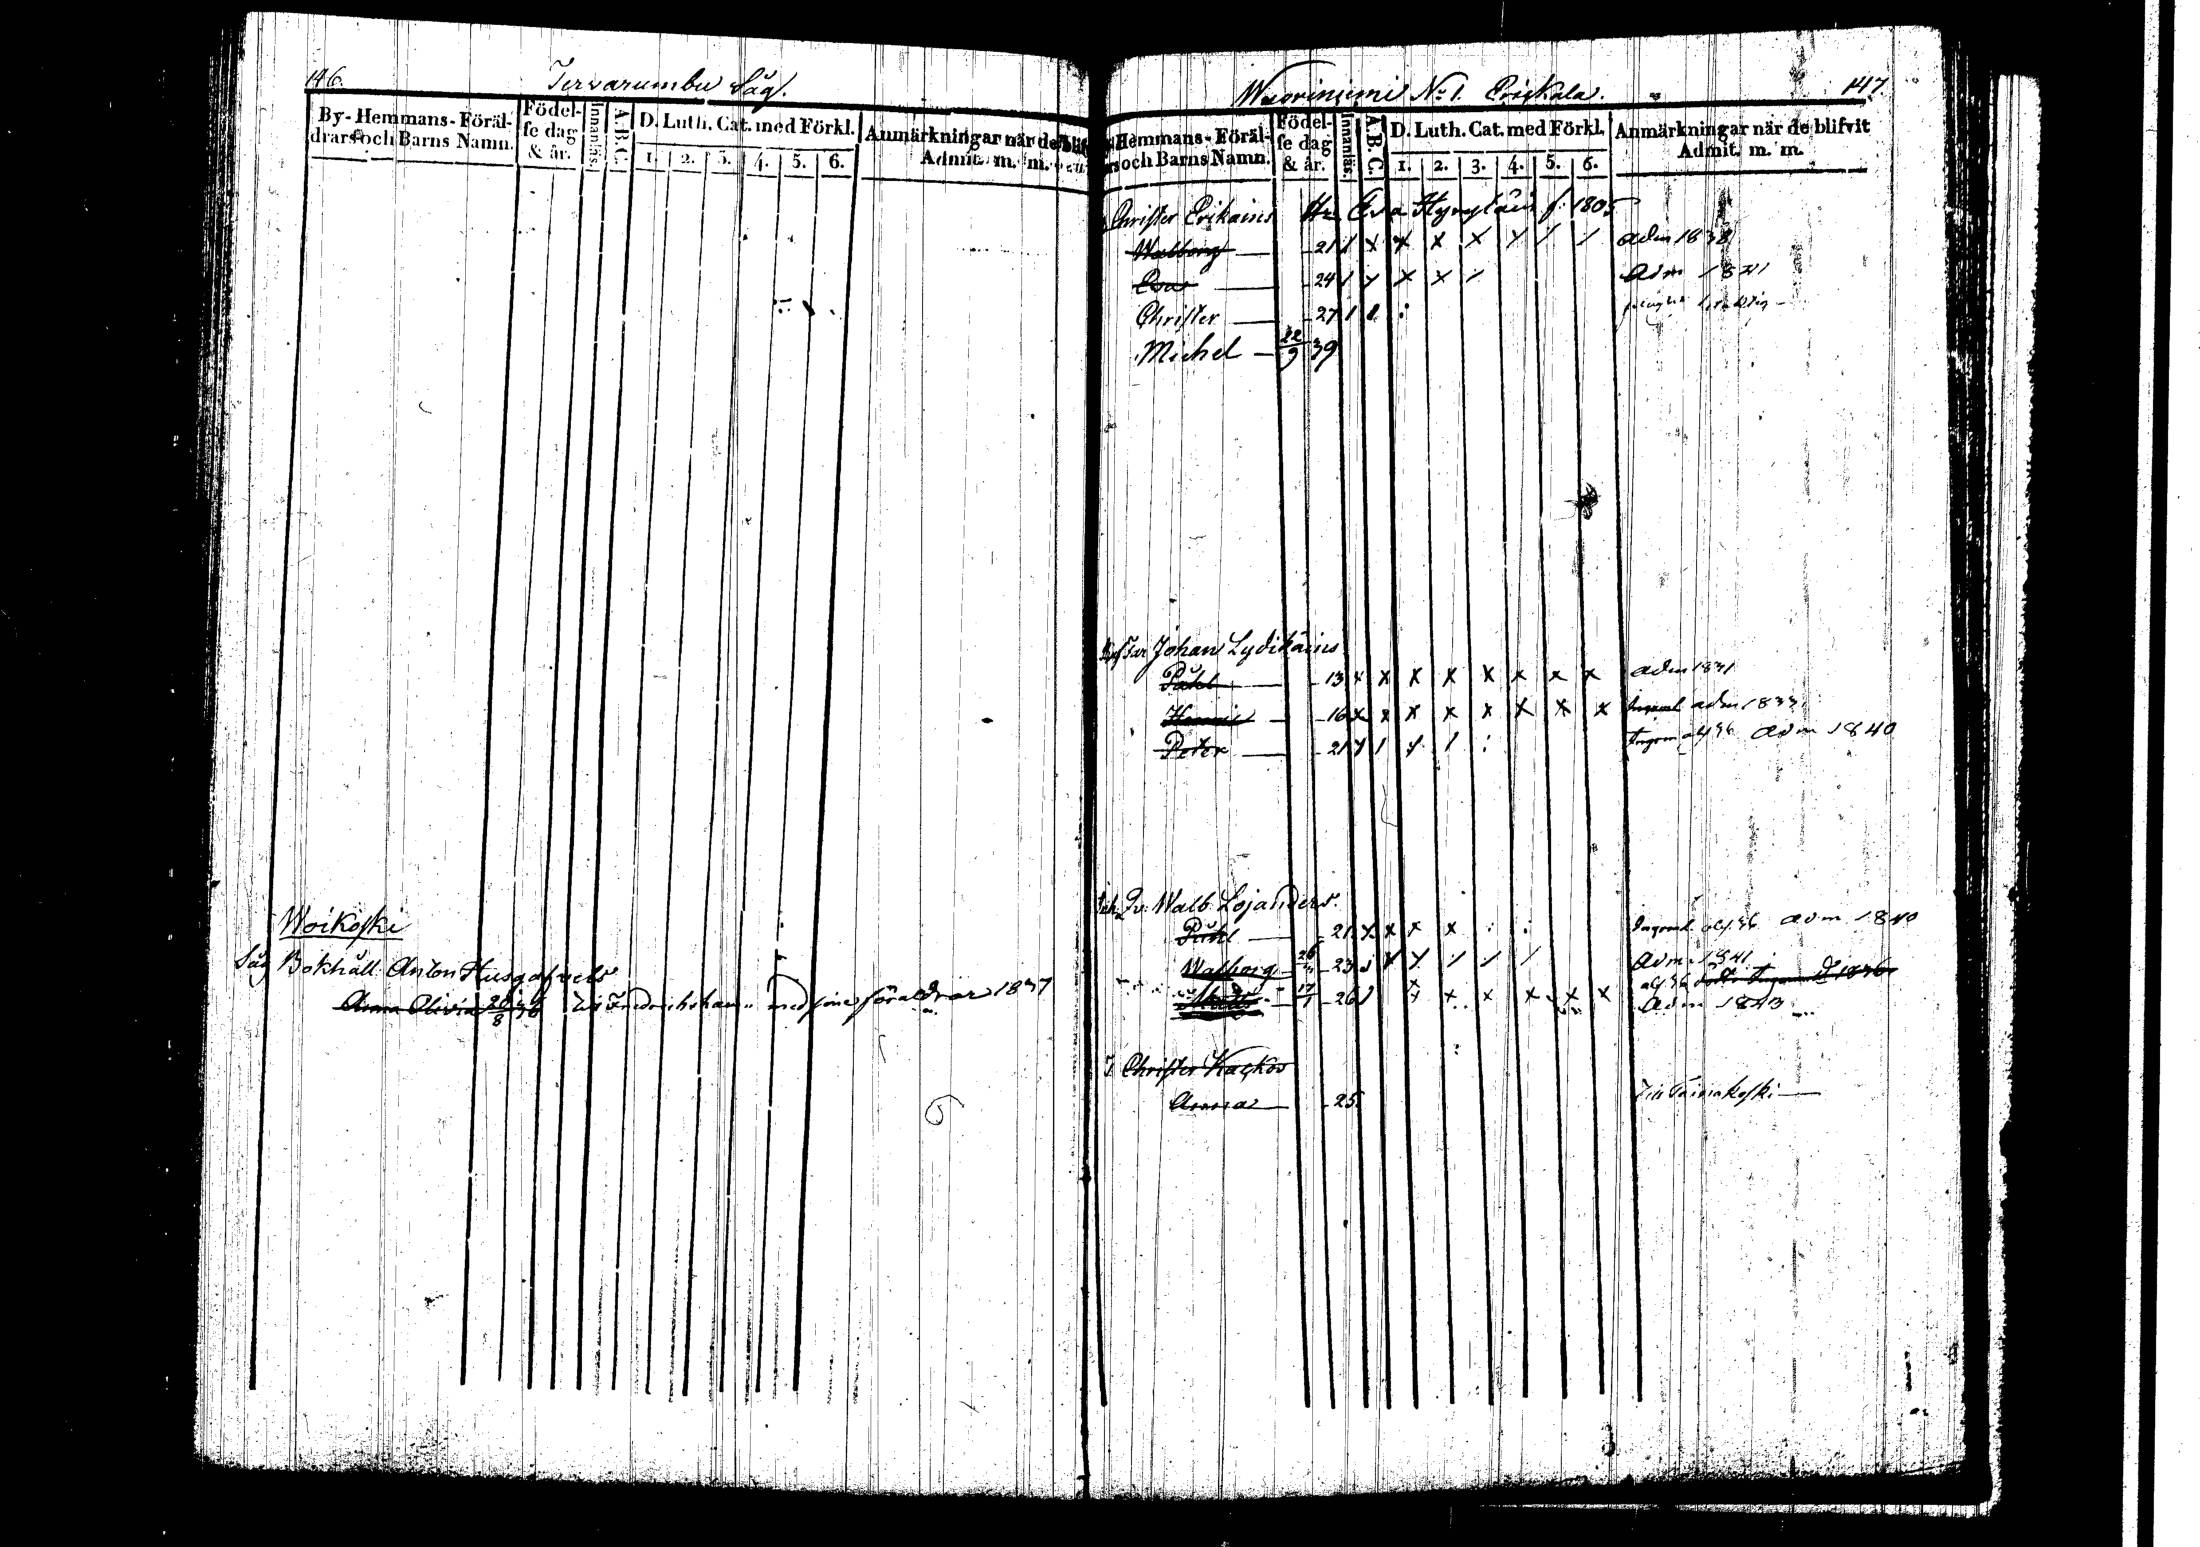 146.
Tervarumbu Såg.
By- Hemmans- Föräl-
drars och Barns Namn.
Födel-
se dag
& år.
Innanläs.
A.B.C.
D. Luth. Cat. med Förkl.
1. 2. 3. 4. 5. 6.
Anmärkningar när de blif
Admit. m. m.
Woikoski
Såg Bokhåll. Anton Husgafvels
Anna Olivia 20/8 36 Till Fredrichshamn med sine föräldrar 1837
Wuoriniemi No 1. Erickala.
147
Hemmans- Föräl-
och Barns Namn.
Födel-
se dag
& år.
Innanläs.
A.B.C.
D. Luth. Cat. med Förkl.
1. 2. 3. 4. 5. 6.
Anmärkningar när de blifvit
Admit. m. m.
Christer Erikains Hu Eva Hyrylain f. 1805
Walborg — 21 / x x x x / / / adm 1838
Eva — 24 / x x x / adm 1841
Christer — 27
Michel — 22/9 39
Johan Lydikäins
Påhl — 13 x x x x x x x x adm 1831
— 16 x x x x x x x x adm 1833
Peter — 21 adm 1840
Walb. Lojanders.
Påhl — 21 x x x x adm 1840
Walborg — 23 adm 1841
17/1 26 x x x x x x adm 1843
Christer Kackos
Anna — 25 Till Tainakoski —